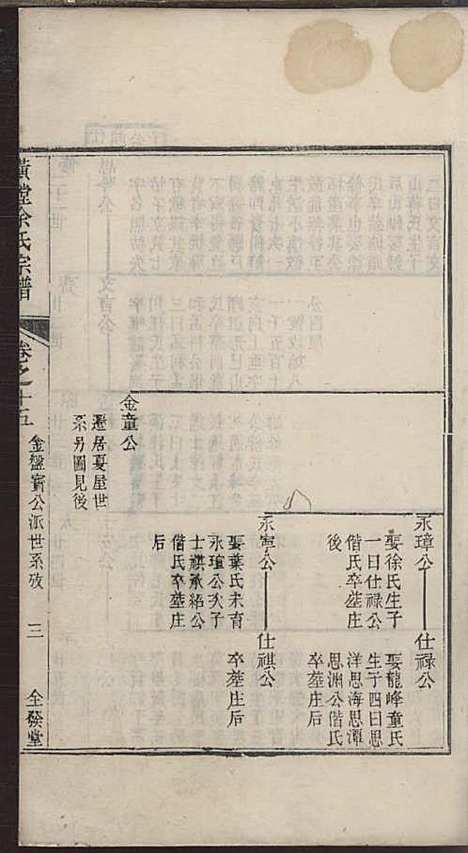 永璋公——仕祿公
娶徐氏生子
一曰仕祿公
偕氏卒葬庄
後
娶龍峰童氏
生子四曰思
洋思海思潭
思淵公偕氏
卒葬庄后
永寧公——仕祺公
娶葉氏未育
永瓊公次子
士祺承紹公
偕氏卒葬庄
后
卒葬庄后
金童公
遷居夏屋世
系另圖見後
黃堂余氏宗譜
卷之十五
金盤寶公派世系攷
三
全發堂